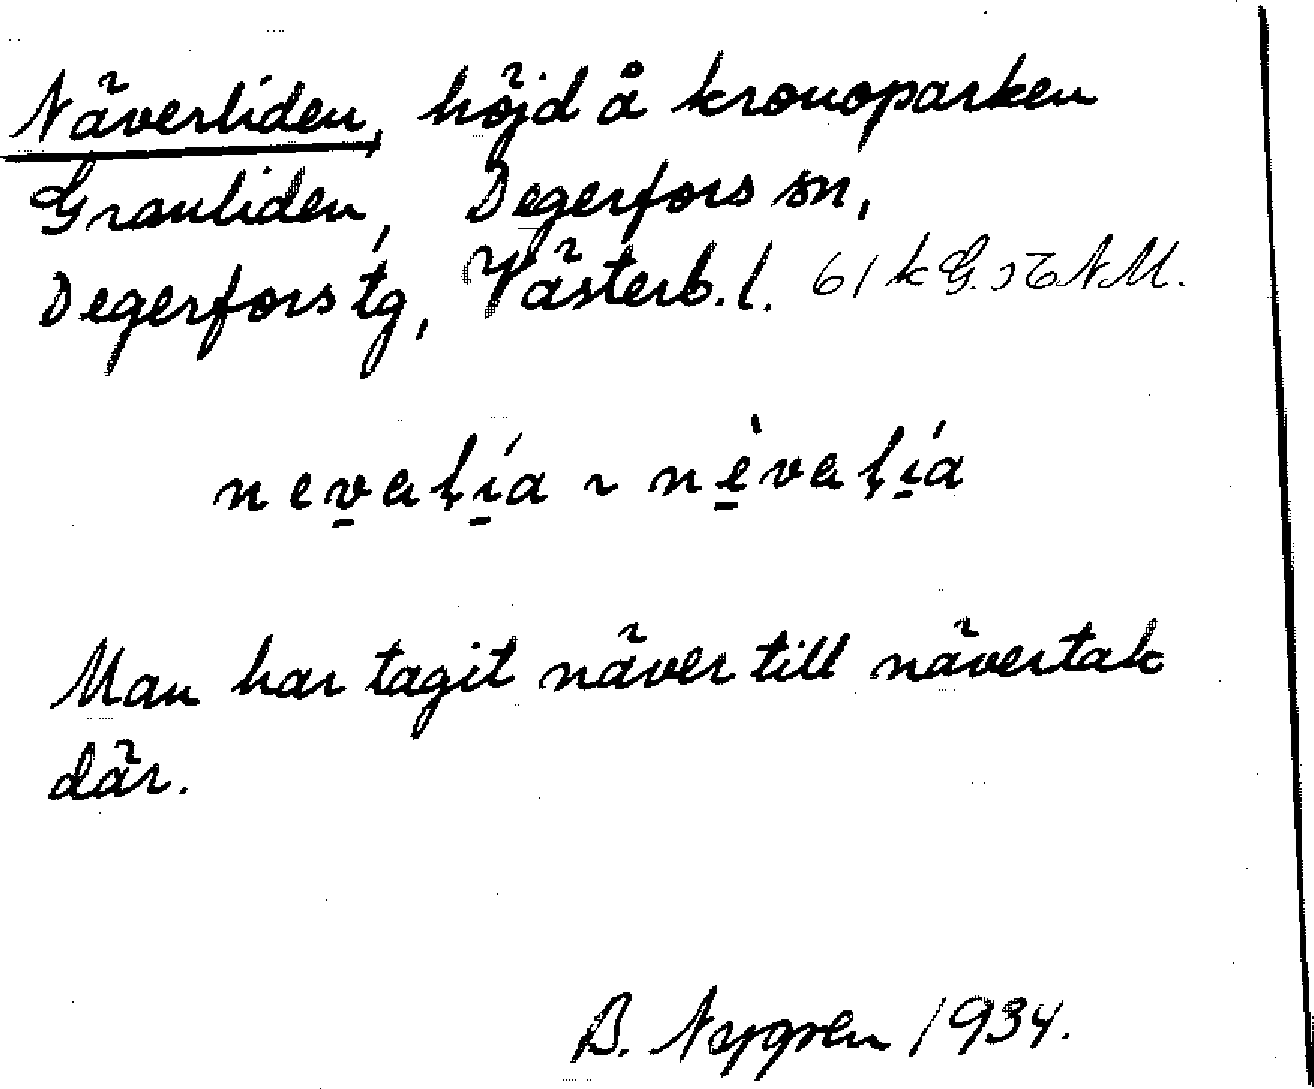 Näverliden, höjd å kronoparken
Granliden, Degerfors sn,
Degerfors tg, Västerb. l. 61 k G. NM.
nevalía ~ nèvalía
Man har tagit näver till nävertak
där.
B. Nygren 1934.